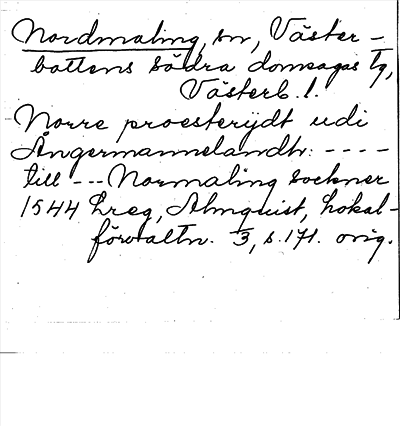 Nordmaling, sn, Väster-
bottens södra domsagas tg,
Västerb. l.
Norre proesterijdt udi
Ångermannelandh: ----
till --- Normaling sockner
1544 Lreg, Almquist, Lokal-
förvaltn. 3, s. 171. orig.